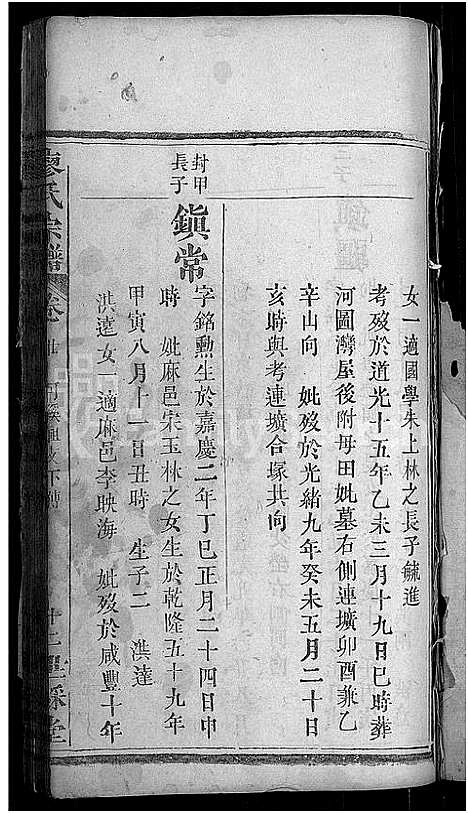 女一適國學朱上林之長子毓進
考歿於道光十五年乙未三月十九日巳時葬
河圖灣屋後附母田妣墓右側連壙卯酉兼乙
辛山向　妣歿於光緒九年癸未五月二十日
亥時與考連壙合塚共向
封甲長子
鎮常
字銘勲生於嘉慶二年丁巳正月二十四日申
時　妣麻邑宋玉林之女生於乾隆五十九年
甲寅八月十一日丑時　生子二　洪達
洪逵女一適麻邑李映海　妣歿於咸豐十年
廖氏宗譜　卷